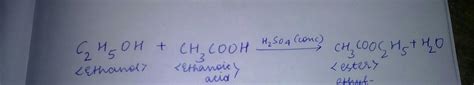 C₂H₅OH + CH₃COOH H₂SO₄ (conc) CH₃COOC₂H₅ + H₂O
<ethanol> <ethanoic <ester>
acid> ethyl-